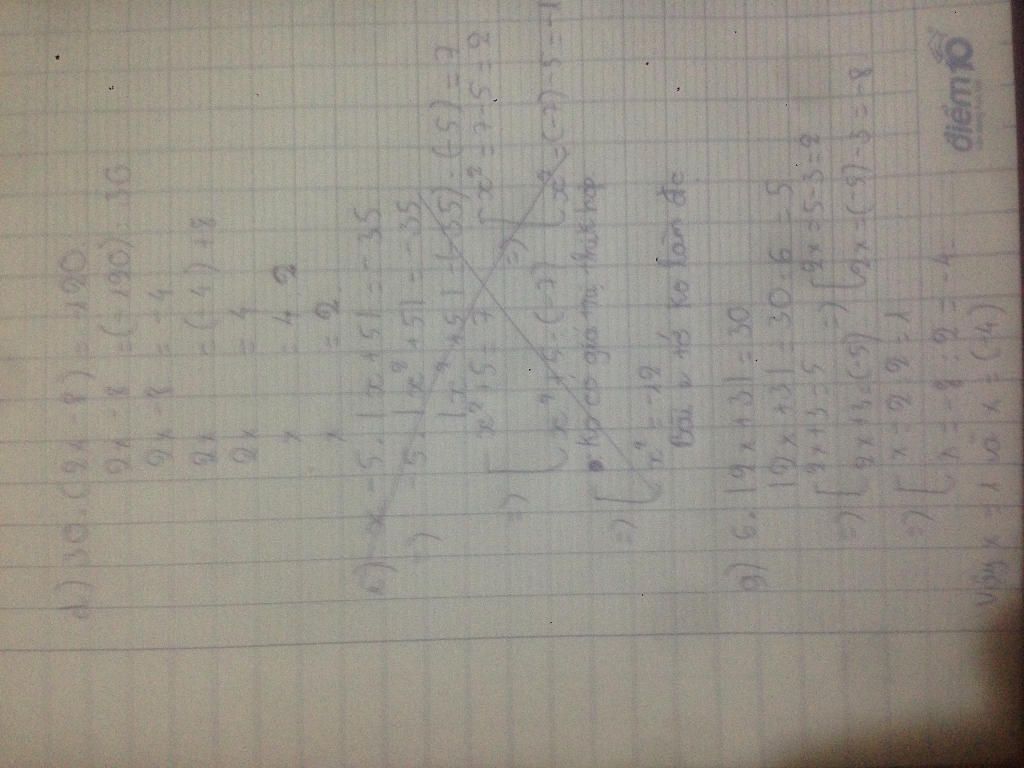 d) 30.(2x-8) = -120
2x-8 = (-120) : 30
2x-8 = -4
2x = (-4) + 8
2x = 4
x = 4 : 2
x = 2
-5.|x²+5| = -35
=) -5.|x²+5| = -35
|x²+5| = (-35) : (-5) = 7
=) [ x²+5 = 7 =) [ x² = 7-5 = 2
x²+5 = (-7) x² = (-7)-5 = -1
Ko có giá trị thích hợp
=) [
x² = -12
Bài này ko làm đc
g) 6.|2x+3| = 30
|2x+3| = 30:6 = 5
=) [ 2x+3 = 5 =) [ 2x = 5-3 = 2
2x+3 = (-5) 2x = (-5)-3 = -8
=) [ x = 2:2 = 1
x = -8:2 = -4
Vậy x = 1 và x = (-4)
điểm10